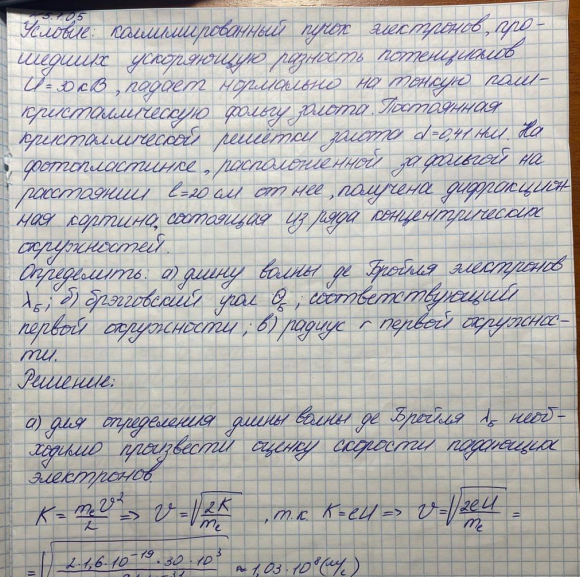 Условие: коллимированный пучок электронов, про-
шедших ускоряющую разность потенциалов
U = 30 кВ, падает нормально на тонкую поли-
кристаллическую фольгу золота. Постоянная
кристаллической решётки золота d = 0,41 нм. На
фотопластинке, расположенной за фольгой на
расстоянии l = 20 см от нее, получена дифракцион-
ная картина, состоящая из ряда концентрических
окружностей.
Определить: а) длину волны де Бройля электронов
λБ; б) брэгговский угол ΘБ, соответствующий
первой окружности; в) радиус r первой окружнос-
ти.
Решение:
а) для определения длины волны де Бройля λБ необ-
ходимо произвести оценку скорости падающих
электронов
K = mₑV²/2 => V = √(2K/mₑ) , т.к. K = eU => V = √(2eU/mₑ) =
= √(2·1,6·10⁻¹⁹·30·10³ ≈ 1,03·10⁸ (м/с)